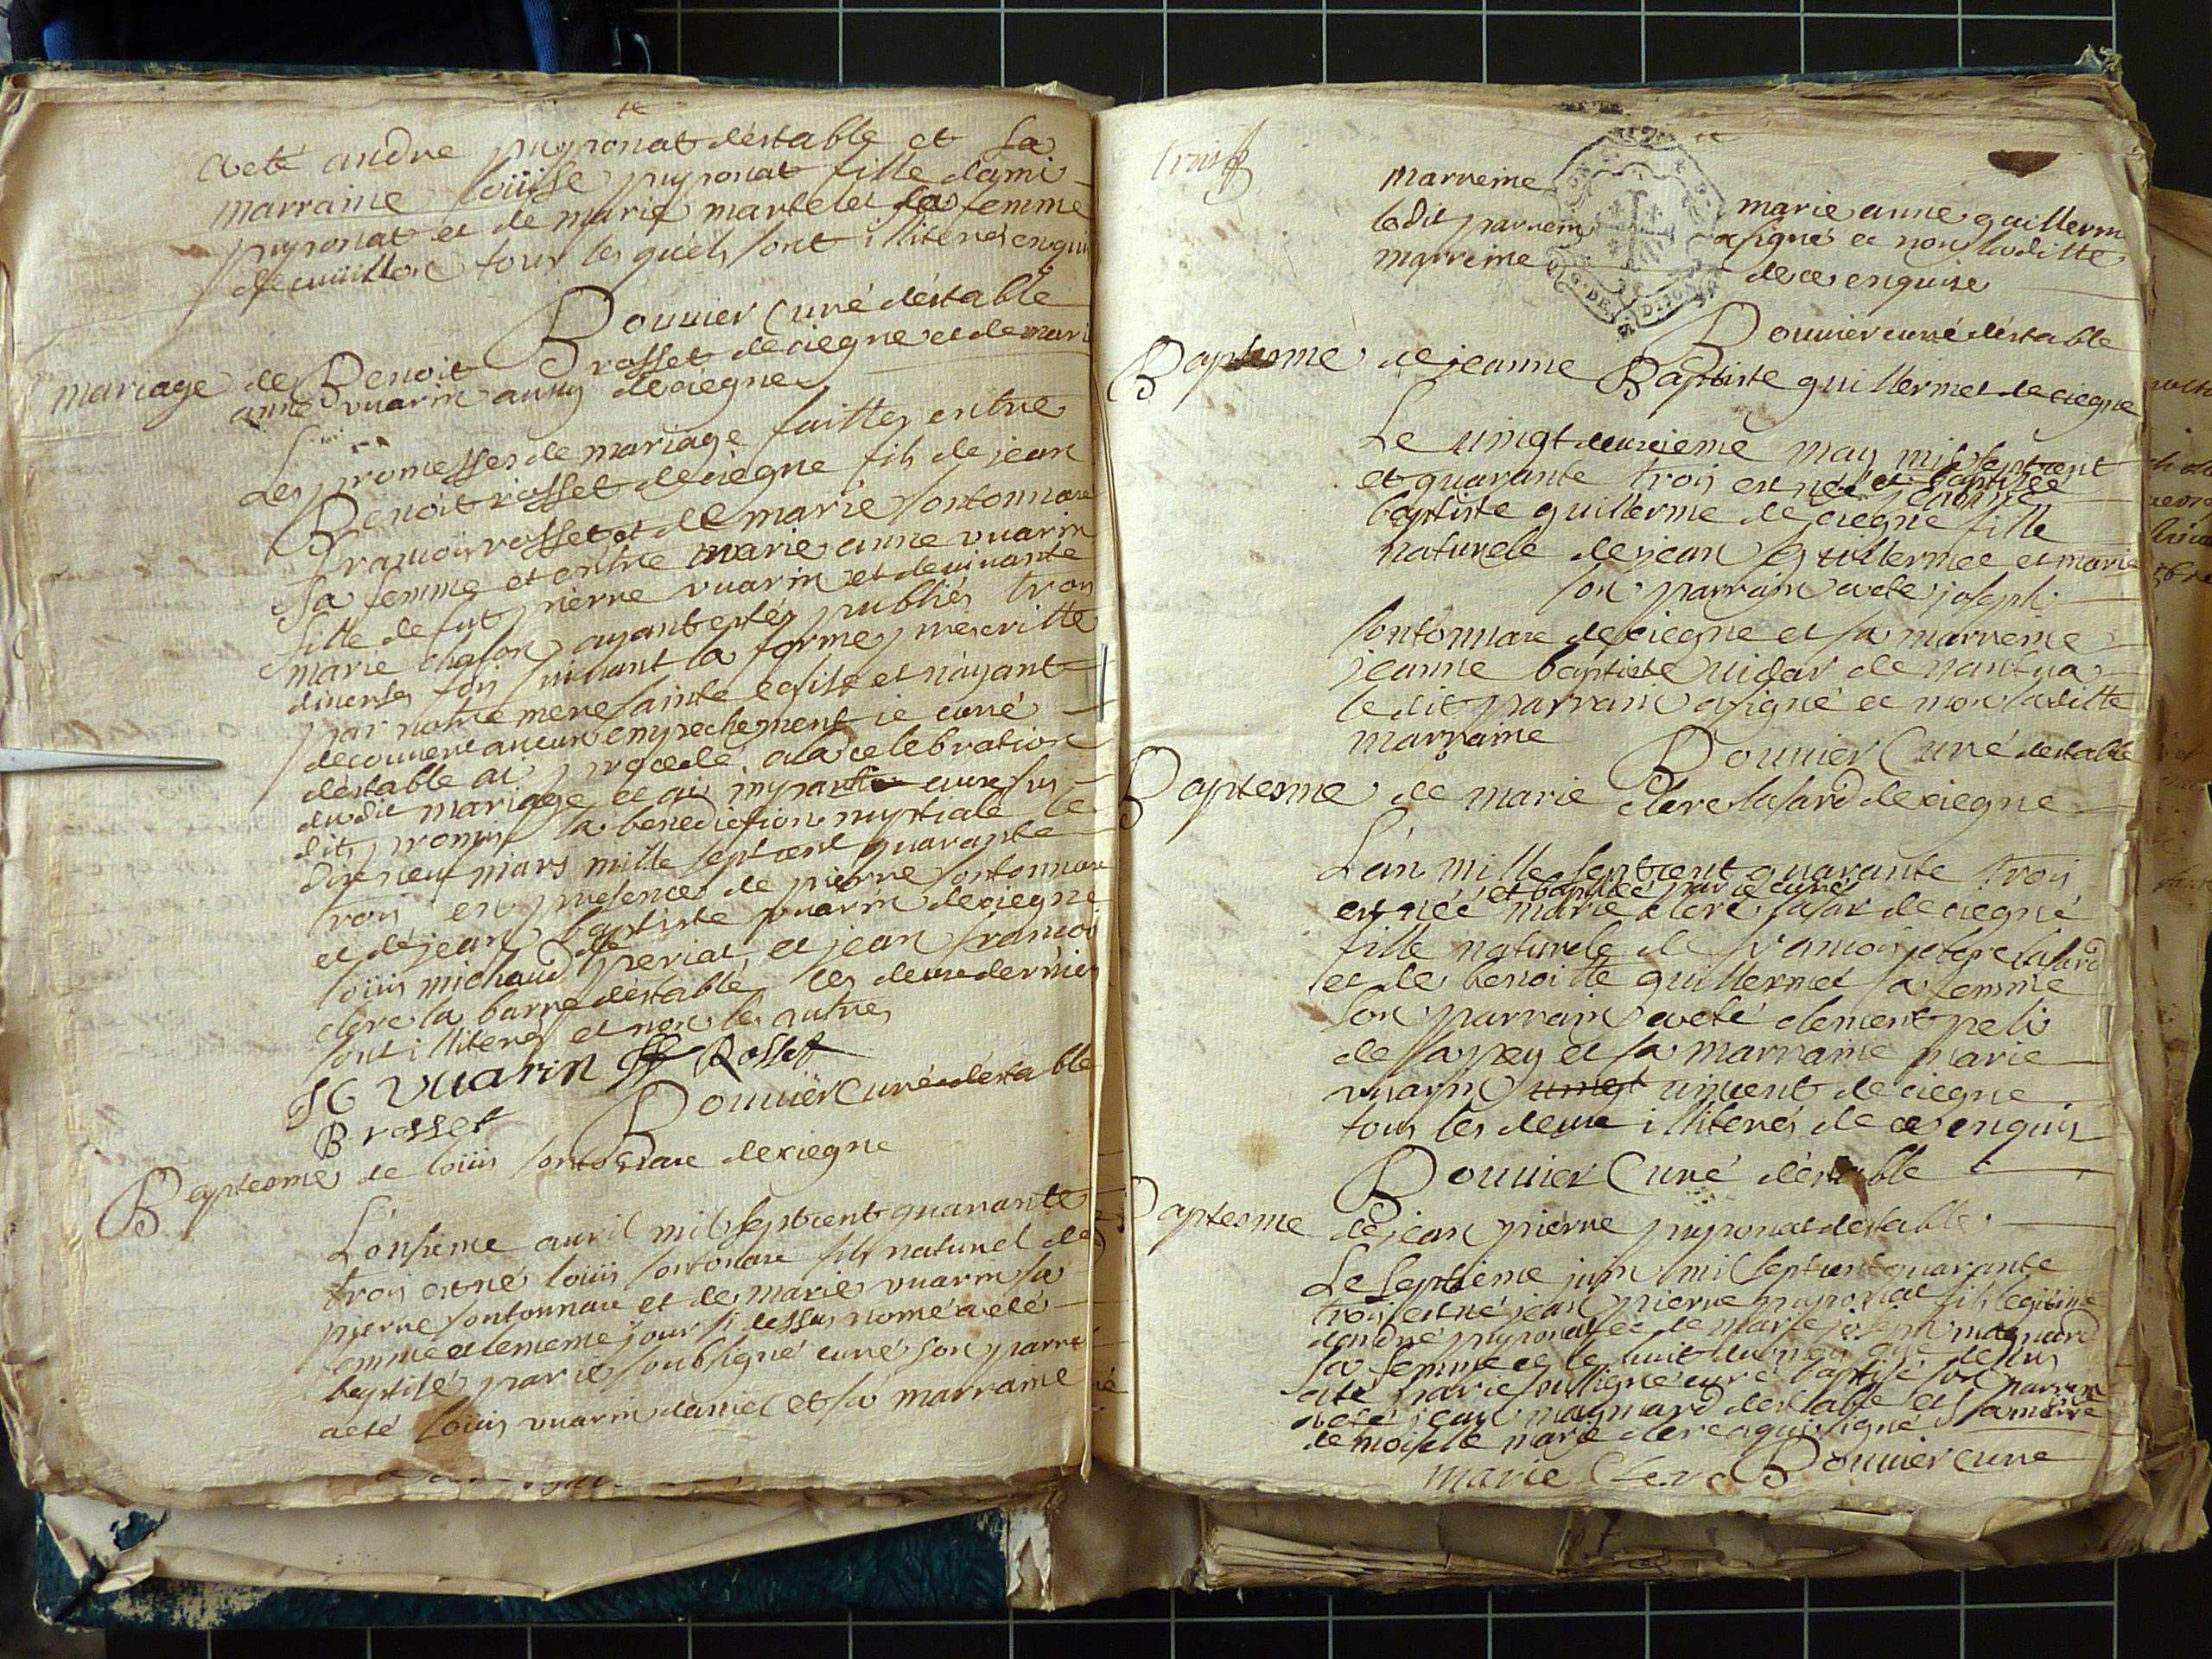 aeté andre puyronat déstable et sa
marraine loüise puyronat fille dami
puyronat et de marie martelet sa femme
de tous les quéls sont illiterés enquis
Bouuier Curé déstable
mariage de Benoit rosset de ciegne et de mari
anne vuarin aussy de ciegne
Les promesses de mariage faittes entre
Benoit rosset de ciegne fils de jean
francois rosset et de marie sontonnax
sa femme et entre marie anne vuarin
fille de fut pierre vuarin et de viuante
marie chason ayant estés publiés trois
diuerses fois suiuant la forme prescritte
par notre mere sainte eglise et n'ayant
decouuert aucun empechement je curé
déstable ai procede a la celebration
dudit mariage et ai imparti aux sus
dits promis la benediction nuptiale le
dix neuf mars mille sept cent quarante
trois en presence de pierre sontonnax
et de jean baptiste vuarin de ciegne
loüis michaud de periat et jean francois
clerc la barre déstable les deux derniers
sont illiterés et non les autres
vuarin Rosset
B rosset Bouuier Curé déstable
Baptesme de loüis sontonnax de ciegne
L'onsieme auril mil sept cent quarante
trois est né loüis sontonax fils naturel de
pierre sontonnax et de marie vuarin sa
femme et le meme jour si dessus nomé a eté
baptisé par je soubsigné curé son parr
aeté loüis vuarin damiel et sa marraine
trois
marreine marie anne guillerm
ledit parrein a signé et non laditte
marreine de ce enquise
Bouuier curé déstable
Baptesme de jeanne Baptiste guillermet de ciegne
Le uingt deuxieme may mil sept cent
et quarante trois est née et baptisée jeanne
baptiste guillerme de ciegne fille
naturele de jean guillermet et marie
son parrain aeté joseph
sontonnax de ciegne et sa marreine
jeanne baptiste uidar de nantua
le dit parrain a signé et non laditte
marraine Bouuier Curé déstable
Baptesme de marie clerc lasard de ciegne
L'an mille sept cent quarante trois
est née et baptisée par je curé marie clerc lasar de ciegne
fille naturele de francois clerc lasard
et de benoitte guillermet sa femme
son parrain aeté clement peli
de lapey et sa marraine marie
vuarin uincent de ciegne
tous les deux illiterés de ce enquis
Bouuier Curé déstable
Baptesme de jean pierre puyronat destable
Le septieme juin mil sept cent quarante
trois est né jean pierre puyronat fils legitime
dandré puyronat et de marie joseph maguard
sa femme et le huit du mois que dessus
a eté par je soussigné curé baptisé son parrain
aeté jean maguard destable et sa marre
demoiselle marie clerc a qui signé
marie Clerc Bouuier Curé